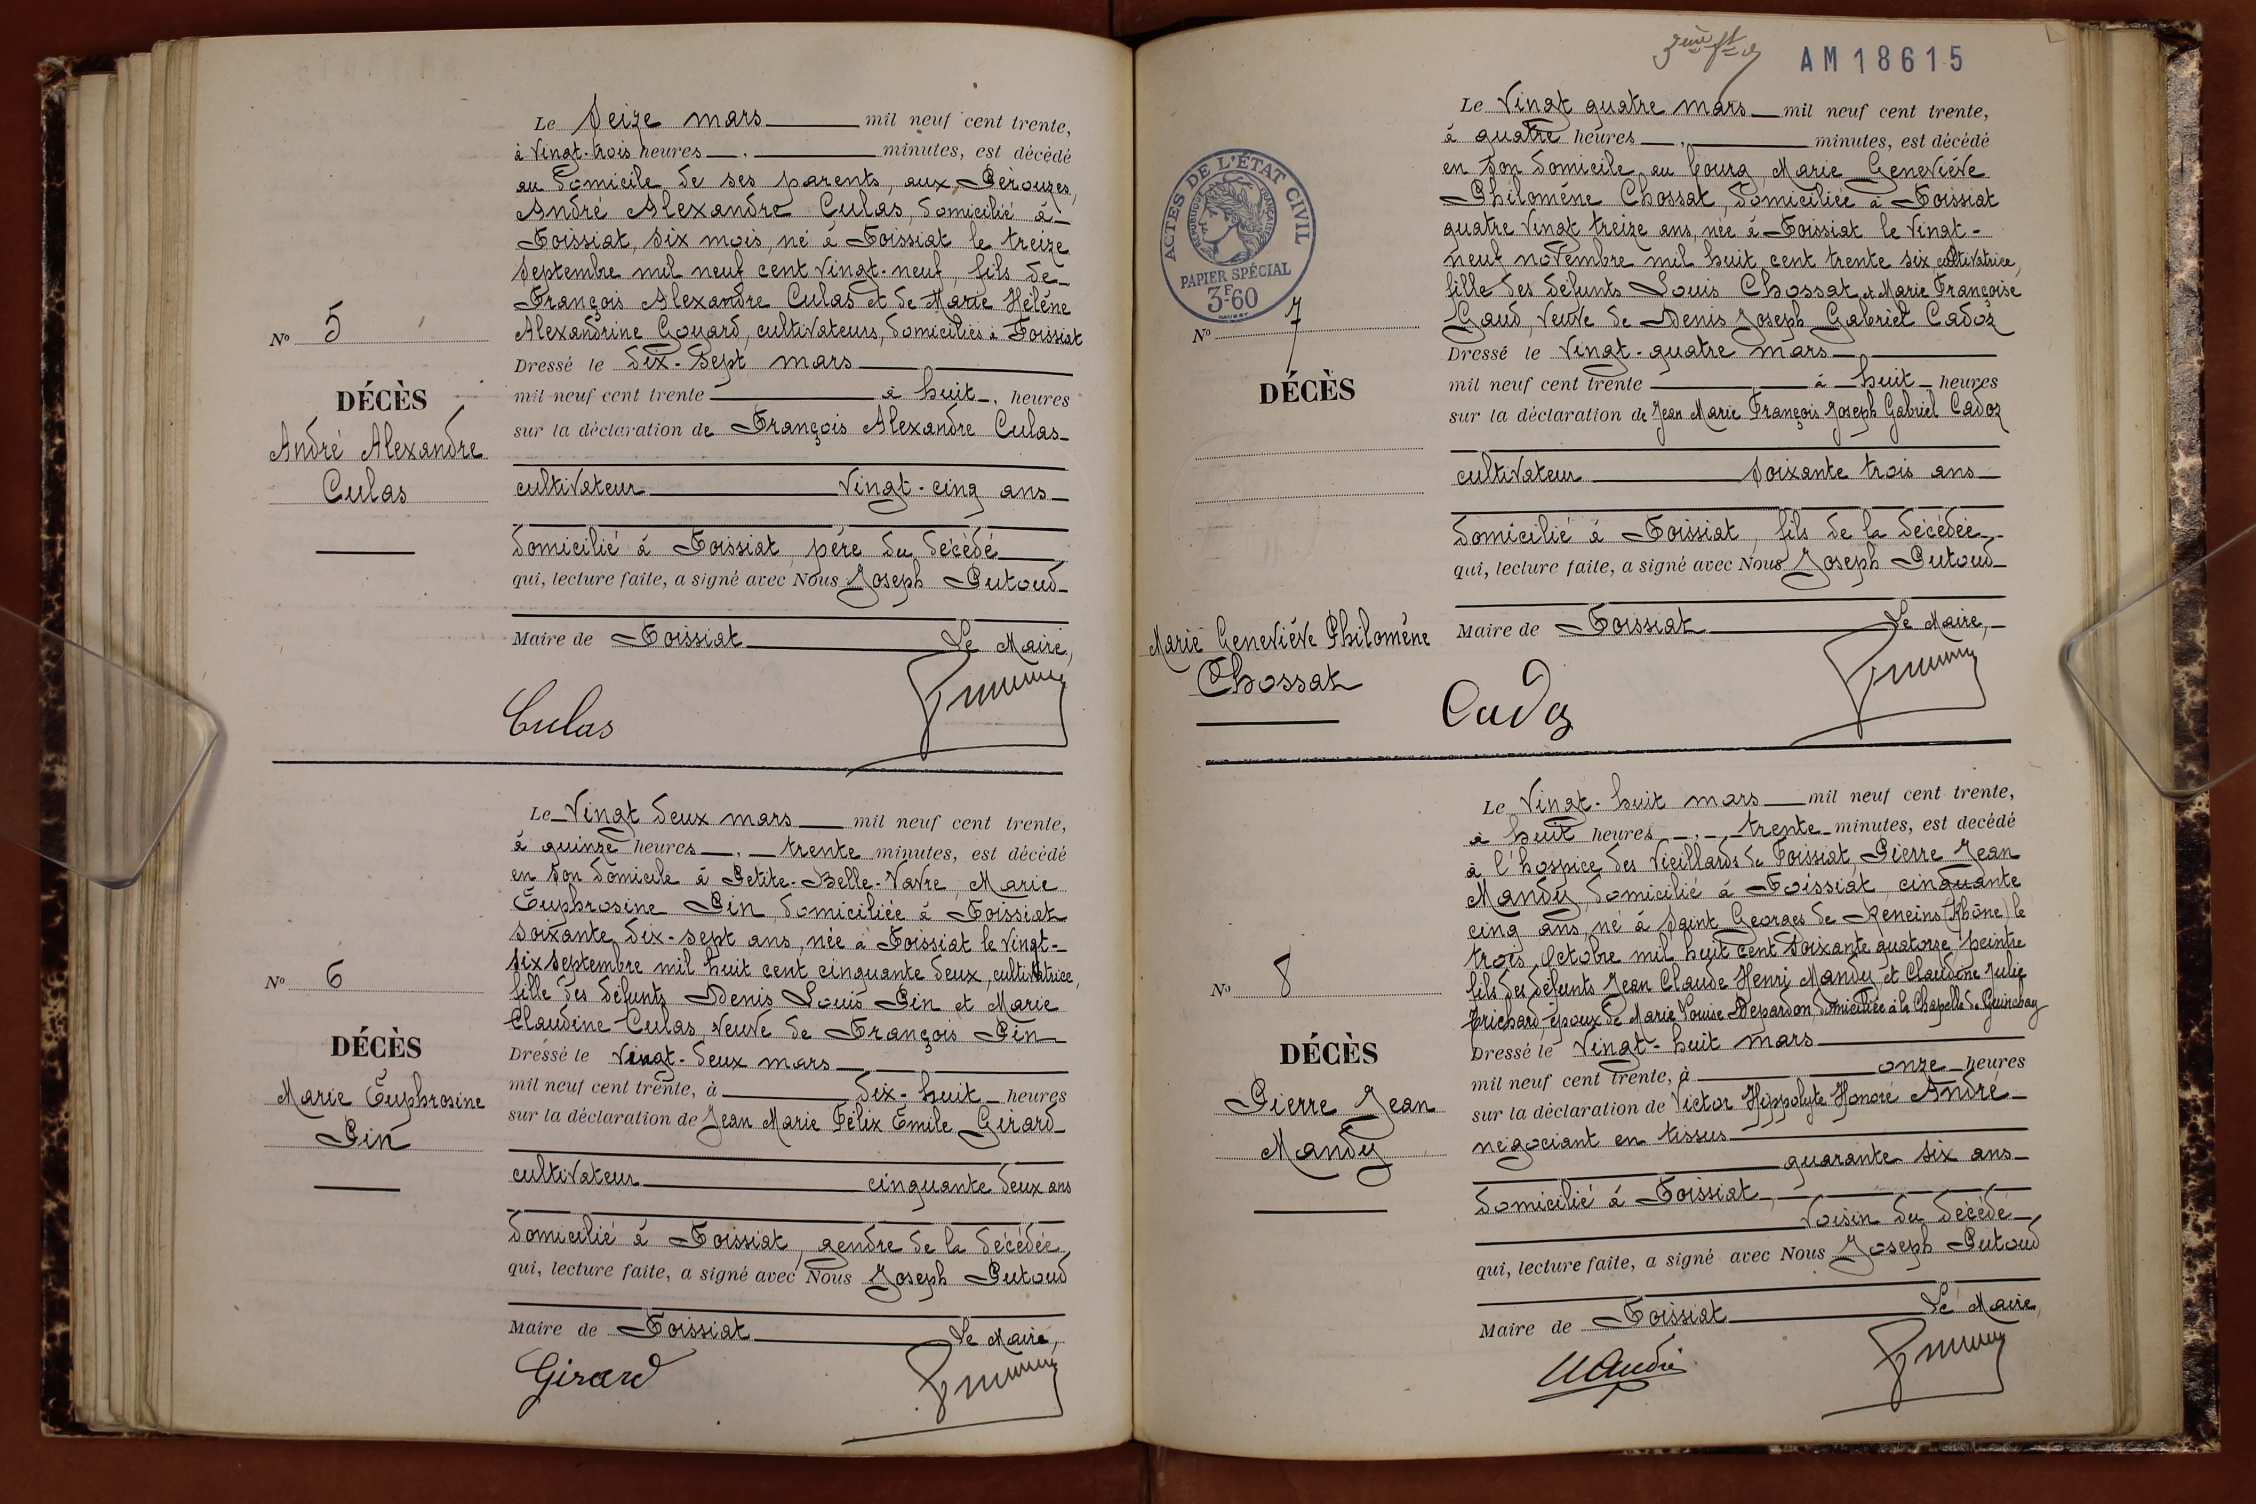 Le Seize mars mil neuf cent trente,
à Vingt-trois heures minutes, est décédé
au domicile de ses parents, aux Pèrouzes,
André Alexandre Culas, domicilié à
Foissiat, six mois, né à Foissiat le treize
septembre mil neuf cent vingt-neuf, fils de
François Alexandre Culas et de Marie Hélène
Alexandrine Gouard, cultivateurs, domiciliés à Foissiat
Dressé le dix-sept mars
mil neuf cent trente à huit heures
sur la déclaration de François Alexandre Culas
cultivateur Vingt-cinq ans
domicilié à Foissiat, père du décédé
qui, lecture faite, a signé avec Nous Joseph Putoud
Maire de Foissiat Le Maire,
Culas
No 5
DÉCÈS
André Alexandre
Culas
Le Vingt deux mars mil neuf cent trente,
à quinze heures trente minutes, est décédé
en son domicile à Petite-Belle-Vavre, Marie
Euphrosine Pin, domiciliée à Foissiat
soixante dix-sept ans, née à Foissiat le vingt-
six septembre mil huit cent cinquante deux, cultivatrice,
fille des défunts Denis Louis Pin et Marie
Claudine Culas, veuve de François Pin
Dressé le vingt-deux mars
mil neuf cent trente, à dix-huit heures
sur la déclaration de Jean Marie Félix Emile Girard
cultivateur cinquante deux ans
domicilié à Foissiat, gendre de la décédée
qui, lecture faite, a signé avec Nous Joseph Putoud
Maire de Foissiat Le Maire,
Girard
No 6
DÉCÈS
Marie Euphrosine
Pin
AM18615
ACTES DE L'ÉTAT CIVIL
RÉPUBLIQUE FRANÇAISE
PAPIER SPÉCIAL
3F-60
Le Vingt quatre mars mil neuf cent trente,
à quatre heures minutes, est décédé
en son domicile au bourg Marie Geneviève
Philomène Chossat, domiciliée à Foissiat
quatre vingt treize ans, née à Foissiat le vingt-
neuf novembre mil huit cent trente six, cultivatrice,
fille des défunts Louis Chossat et Marie Françoise
Gaud, veuve de Denis Joseph Gabriel Cadoz
Dressé le vingt-quatre mars
mil neuf cent trente à huit heures
sur la déclaration de Jean Marie François Joseph Gabriel Cadoz
cultivateur soixante trois ans
domicilié à Foissiat, fils de la décédée
qui, lecture faite, a signé avec Nous Joseph Putoud
Maire de Foissiat Le Maire,
Cadoz
No 7
DÉCÈS
Marie Geneviève Philomène
Chossat
Le Vingt-huit mars mil neuf cent trente,
à huit heures trente minutes, est decédé
à l'hospice des Vieillards de Foissiat Pierre Jean
Mandy, domicilié à Foissiat cinquante
cinq ans, né à Saint Georges de Reneins (Rhône) le
trois Octobre mil huit cent soixante quatorse peintre
fils des défunts Jean Claude Henri Mandy et Claudine Julie
Trichard, époux de Marie Louise Depardon domiciliée à la Chapelle de Guinchay
Dressé le Vingt-huit mars
mil neuf cent trente, à onze heures
sur la déclaration de Victor Hippolyte Honoré André
négociant en tissus
quarante six ans
domicilié à Foissiat,
voisin du décédé
qui, lecture faite, a signé avec Nous Joseph Putoud
Maire de Foissiat Le Maire,
No 8
DÉCÈS
Pierre Jean
Mandy